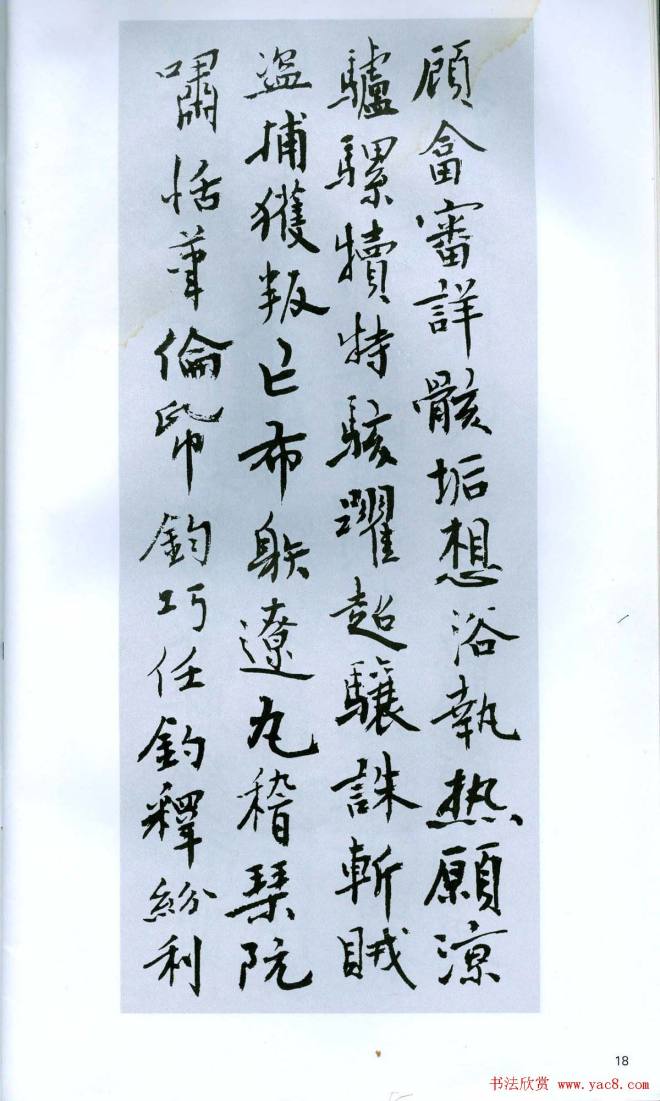 頋畣審詳骸垢想浴執热願涼
驢騾犢特駭躍超驤誅斬賊
盜捕獲叛亡布䠶遼丸稽琴阮
嘯恬筆倫帋鈞巧任釣釋紛利
18
书法欣赏 www.yac8.com